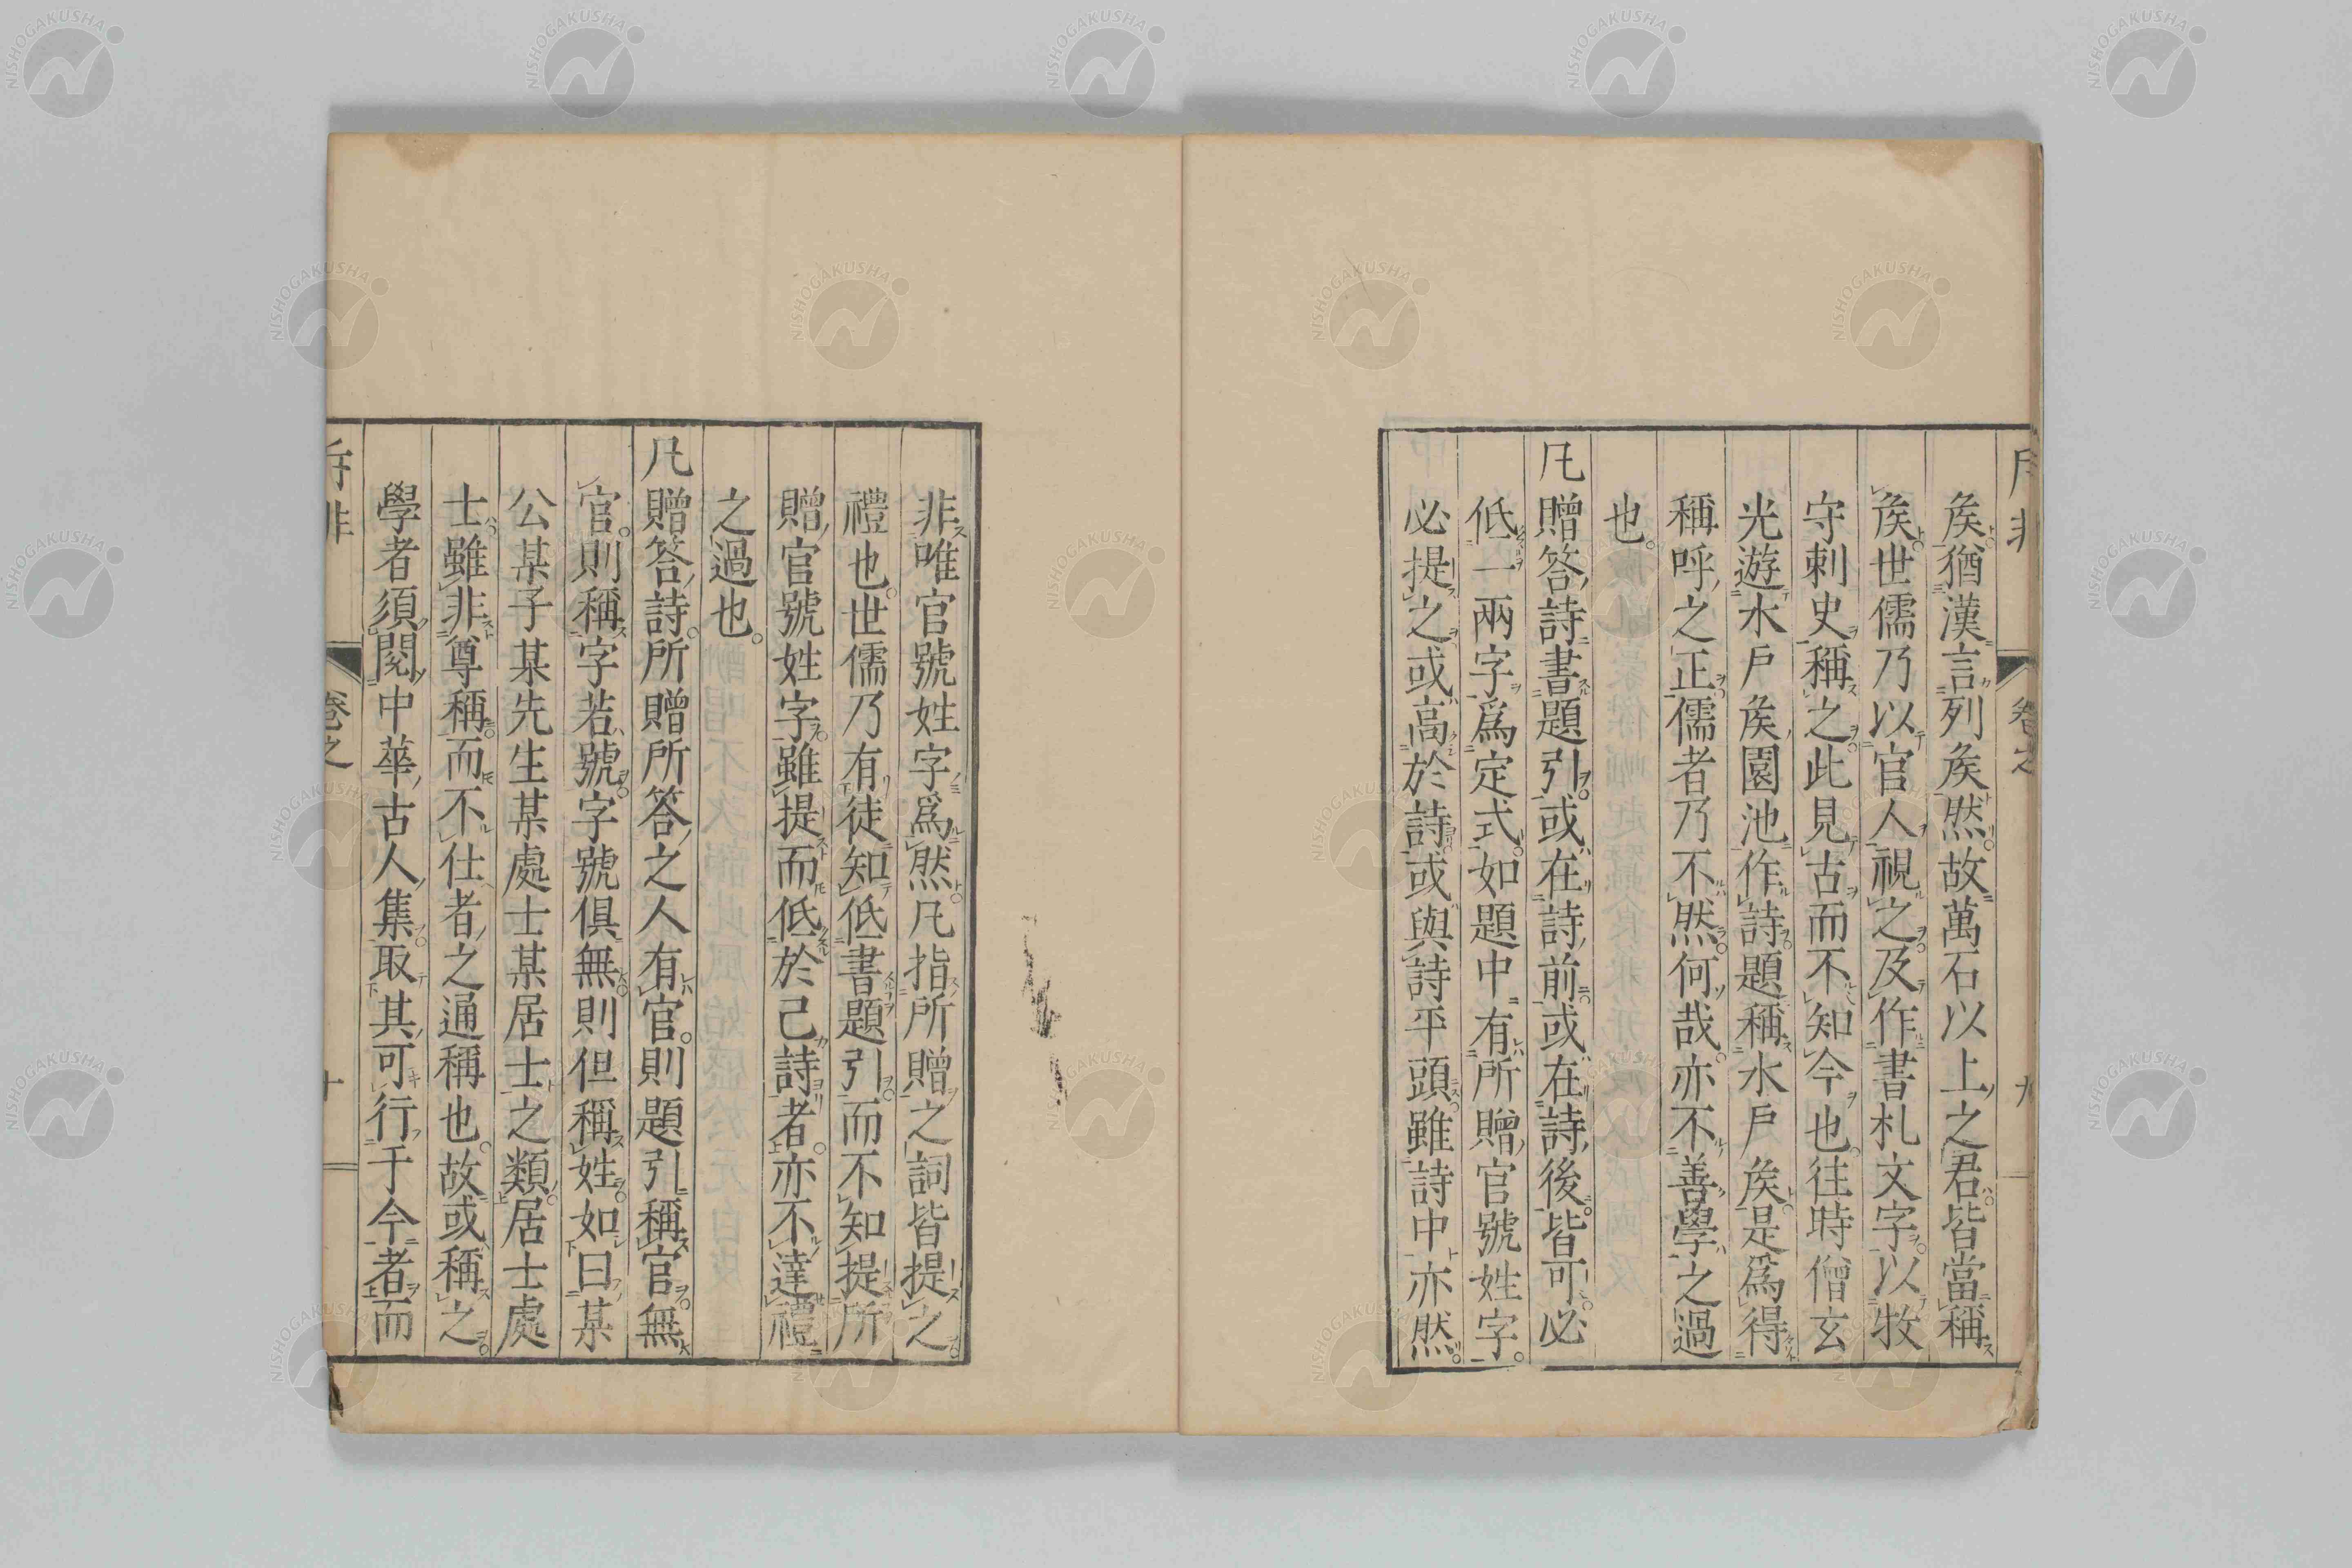 矦猶漢言列矦然。故萬石以上之君。皆當稱
矦。世儒乃以官人視之。及作書札文字。以牧
守刺史稱之。此見古而不知今也。往時僧玄
光遊水戶矦園池作詩。題稱水戶矦。是爲得
稱呼之正。儒者乃不然。何哉。亦不善學之過
也。
凡贈答詩書題引。或在詩前。或在詩後。皆可。必
低一兩字爲定式。如題中有所贈官號姓字。
必提之。或高於詩。或與詩平頭。雖詩中亦然。
非唯官號姓字爲然。凡指所贈之詞皆提之。
禮也。世儒乃有徒知低書題引。而不知提所
贈官號姓字。雖提而低於己詩者。亦不達禮
之過也。
凡贈答詩。所贈所答之人有官。則題引稱官。無
官。則稱字若號。字號俱無。則但稱姓。如曰某
公某子某先生某處士某居士之類。居士處
士雖非尊稱。而不仕者之通稱也。故或稱之。
學者須閱中華古人集。取其可行于今者而
卷之
九
卷之
十
NISHOGAKUSHA